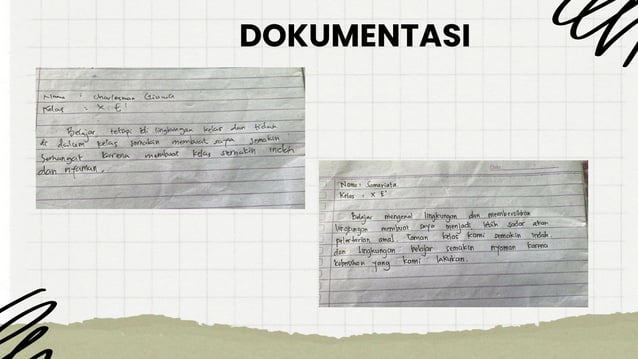 DOKUMENTASI
Nama :
Kelas : X E'
Belajar tetapi di lingkungan kelas dan tidak
di dalam kelas semakin membuat saya semakin
Semangat karena membuat kelas semakin indah
dan nyaman.
Nama : Samariata
Kelas : X E'
Belajar mengenal lingkungan dan membersihkan
lingkungan membuat saya menjadi lebih sadar akan
pelestarian Taman kelas kami semakin indah
dan lingkungan belajar semakin nyaman karna
kebersihan yang kami lakukan.